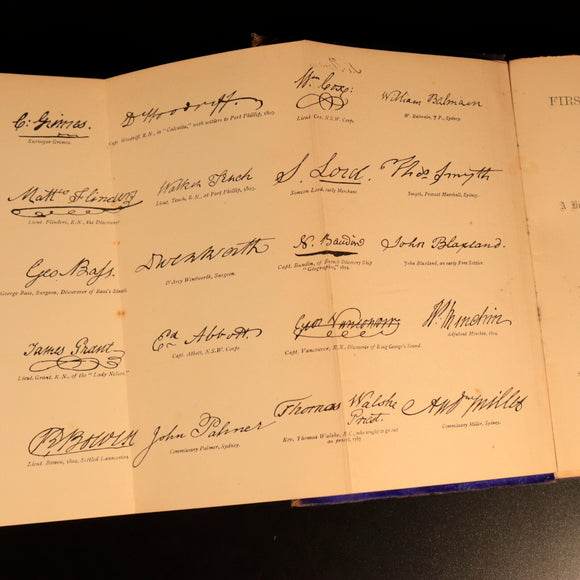 C: Grimes.
Surveyor Grimes.
D Woodriff.
Capt. Woodriff, R.N., in "Calcutta," with settlers to Port Phillip, 1803.
Wm Cox:
Lieut. Cox, N.S.W. Corps.
William Balmain
W. Balmain, J.P., Sydney.
Matt.w Flinders
Lieut. Flinders, R.N., the Discoverer
Watkin Tench
Lieut. Tench, R.N., at Port Phillip, 1803.
S. Lord.
Simeon Lord, early Merchant
Thos Smyth
Smyth, Provost Marshall, Sydney.
Geo Bass.
George Bass, Surgeon, Discoverer of Bass's Strait.
D Wentworth
D'Arcy Wentworth, Surgeon.
N. Baudin
Capt. Baudin, of French Discovery Ship
"Géographe," 1802.
John Blaxland.
John Blaxland, an early Free Settler.
James Grant
Lieut. Grant, R.N., of the "Lady Nelson."
Ed Abbott.
Capt. Abbott, N.S.W. Corps.
Geo Vancouver
Capt. Vancouver, R.N., Discoverer of King George's Sound.
W. Minchin
Adjutant Minchin, 1802.
Bowen
Lieut. Bowen, 1802, Settled Launceston.
John Palmer
Commissary Palmer, Sydney.
Thomas Walshe
Priest
Rev. Thomas Walshe, R.C., who sought to go out
as priest, 1787
And.w Miller
Commissary Miller, Sydney.
FIRS